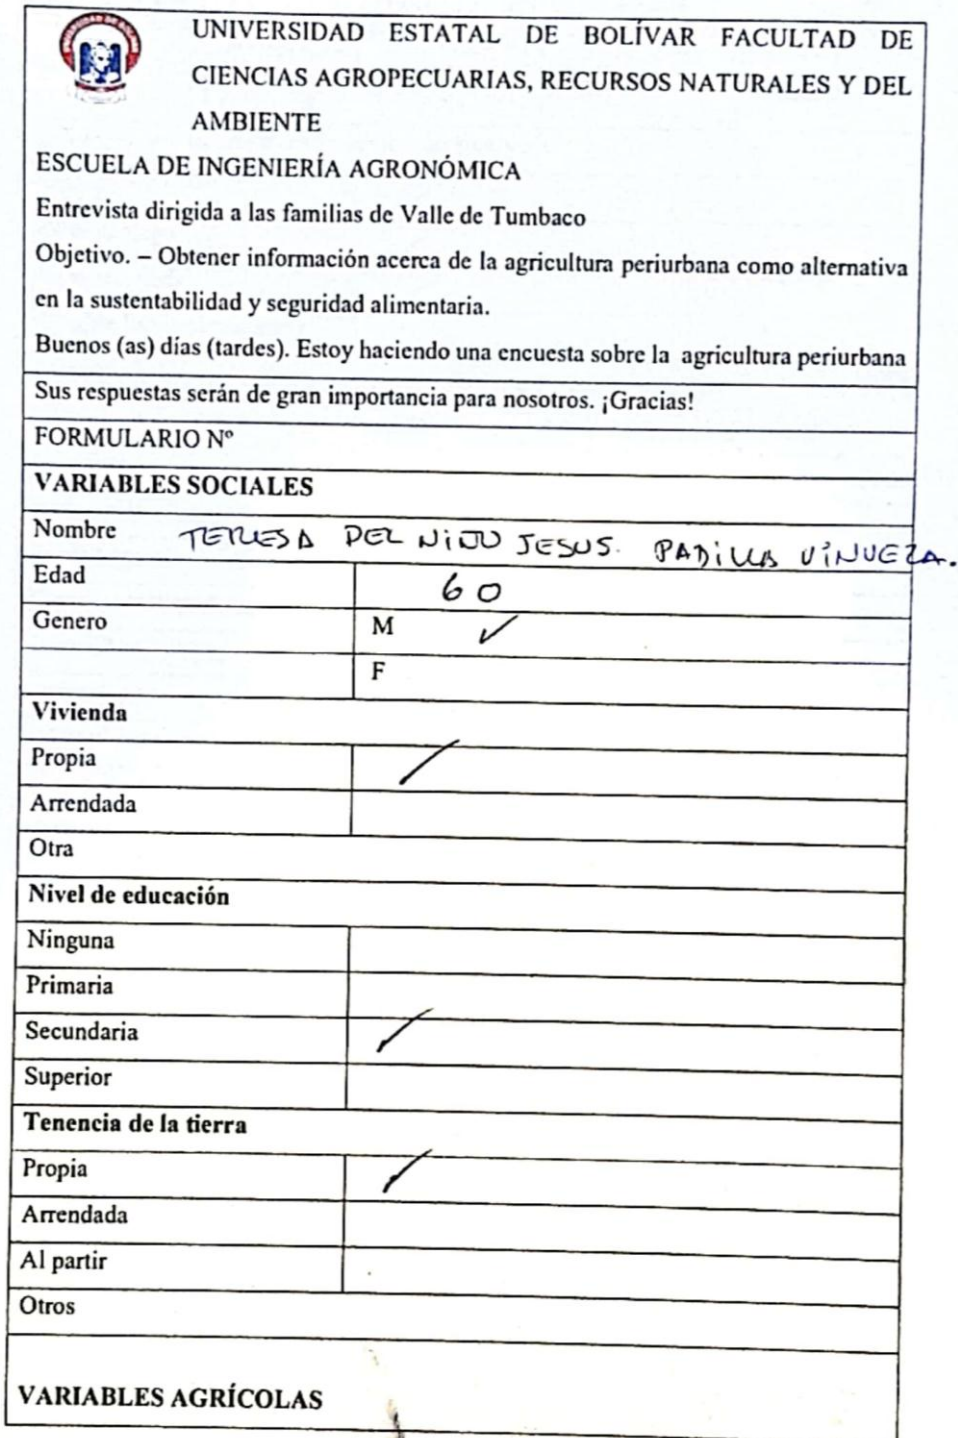 UNIVERSIDAD ESTATAL DE BOLÍVAR FACULTAD DE
CIENCIAS AGROPECUARIAS, RECURSOS NATURALES Y DEL
AMBIENTE
ESCUELA DE INGENIERÍA AGRONÓMICA
Entrevista dirigida a las familias de Valle de Tumbaco
Objetivo. – Obtener información acerca de la agricultura periurbana como alternativa
en la sustentabilidad y seguridad alimentaria.
Buenos (as) días (tardes). Estoy haciendo una encuesta sobre la agricultura periurbana
Sus respuestas serán de gran importancia para nosotros. ¡Gracias!
FORMULARIO Nº
VARIABLES SOCIALES
Nombre TERESA DEL NIÑO JESUS. PADILLA VINUEZA.
Edad 60
Genero M ✓
F
Vivienda
Propia /
Arrendada
Otra
Nivel de educación
Ninguna
Primaria
Secundaria /
Superior
Tenencia de la tierra
Propia /
Arrendada
Al partir
Otros
VARIABLES AGRÍCOLAS